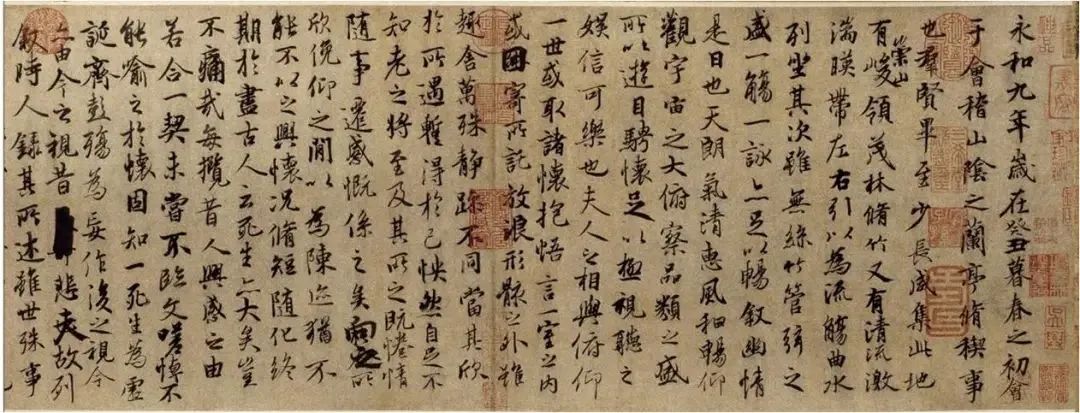 永和九年歲在癸丑暮春之初會
于會稽山陰之蘭亭脩稧事
也羣賢畢至少長咸集此地
有崇山峻領茂林脩竹又有清流激
湍暎帶左右引以為流觴曲水
列坐其次雖無絲竹管弦之
盛一觴一詠亦足以暢敘幽情
是日也天朗氣清惠風和暢仰
觀宇宙之大俯察品類之盛
所以遊目騁懷足以極視聽之
娛信可樂也夫人之相與俯仰
一世或取諸懷抱悟言一室之內
或因寄所託放浪形骸之外雖
趣舍萬殊靜躁不同當其欣
於所遇暫得於己怏然自足不
知老之將至及其所之既惓情
隨事遷感慨係之矣向之所
欣俛仰之閒以為陳迹猶不
能不以之興懷況脩短隨化終
期於盡古人云死生亦大矣豈
不痛哉每攬昔人興感之由
若合一契未嘗不臨文嗟悼不
能喻之於懷固知一死生為虛
誕齊彭殤為妄作後之視今
亦由今之視昔悲夫故列
敘時人錄其所述雖世殊事